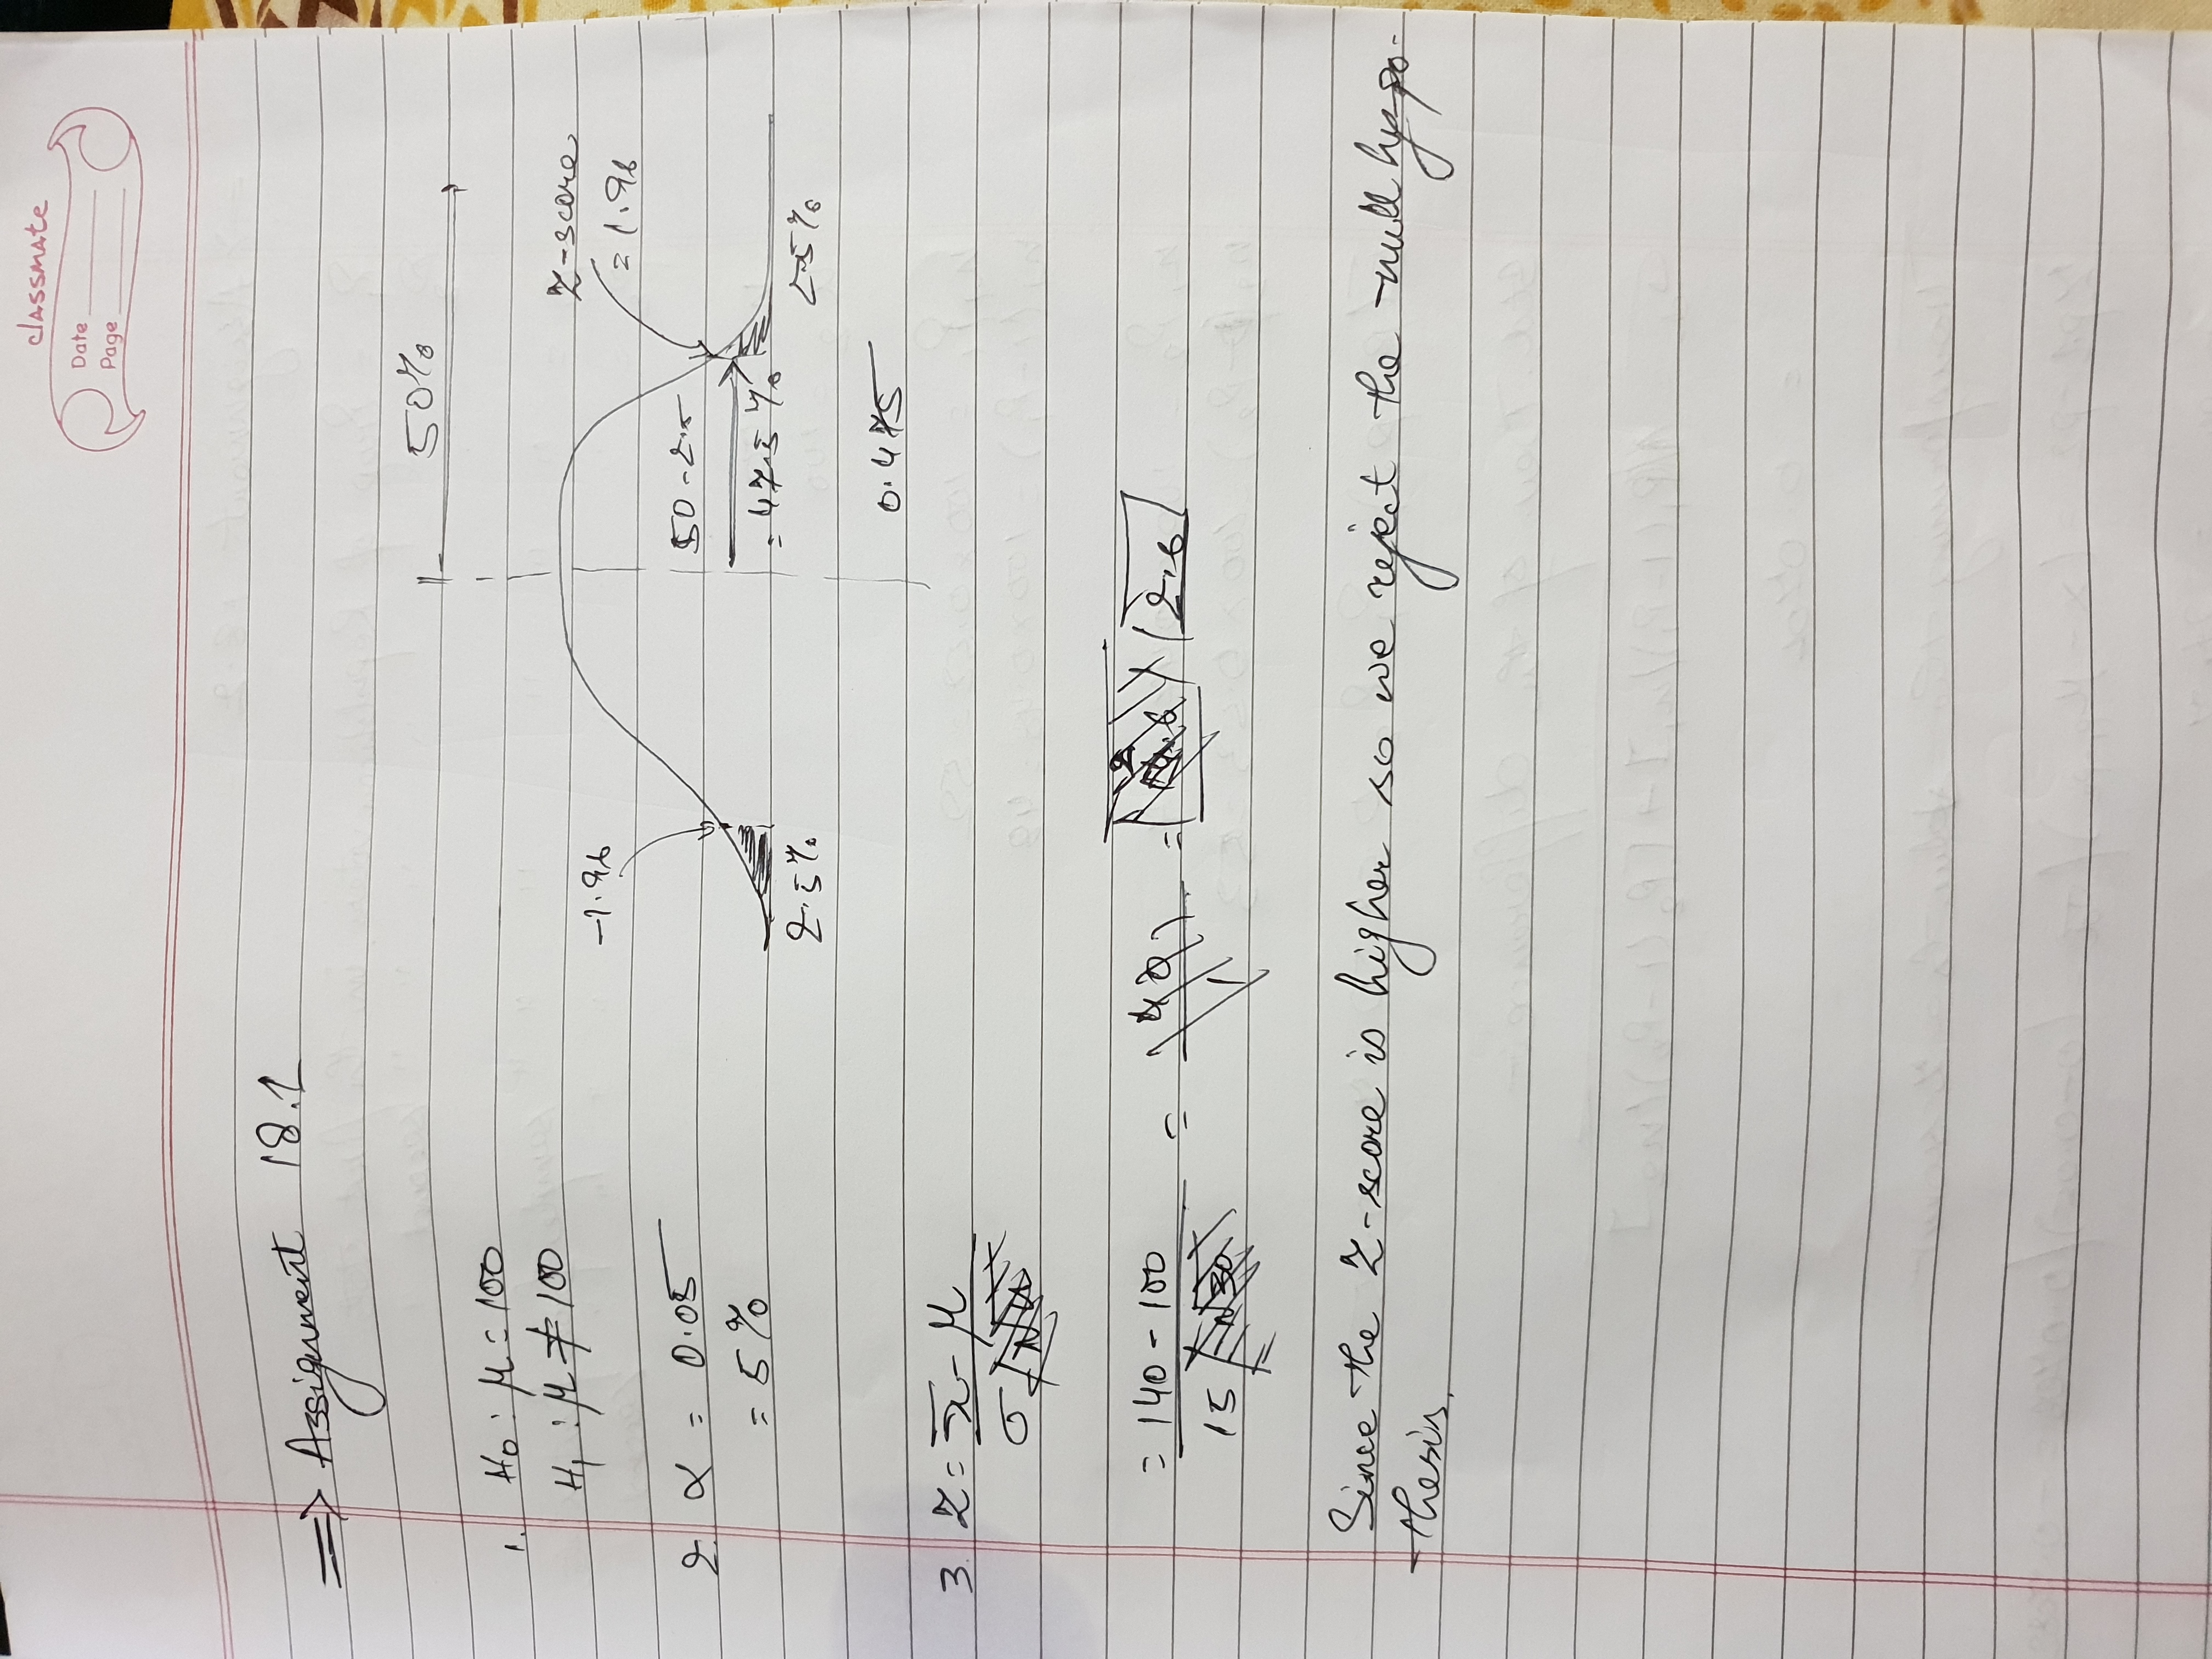 classmate
Date
Page
⇒ Assignment 18.1
50%
1. H0 : μ = 100
H1 : μ ≠ 100
-1.96
Z-score
= 1.96
2. α = 0.05
= 5%
50-2.5
= 47.5%
2.5%
2.5%
0.475
3. Z = x̄ - μ
σ
= 140 - 100 = =
2.6
15
Since the Z-score is higher so we reject the null hypo-
thesis.